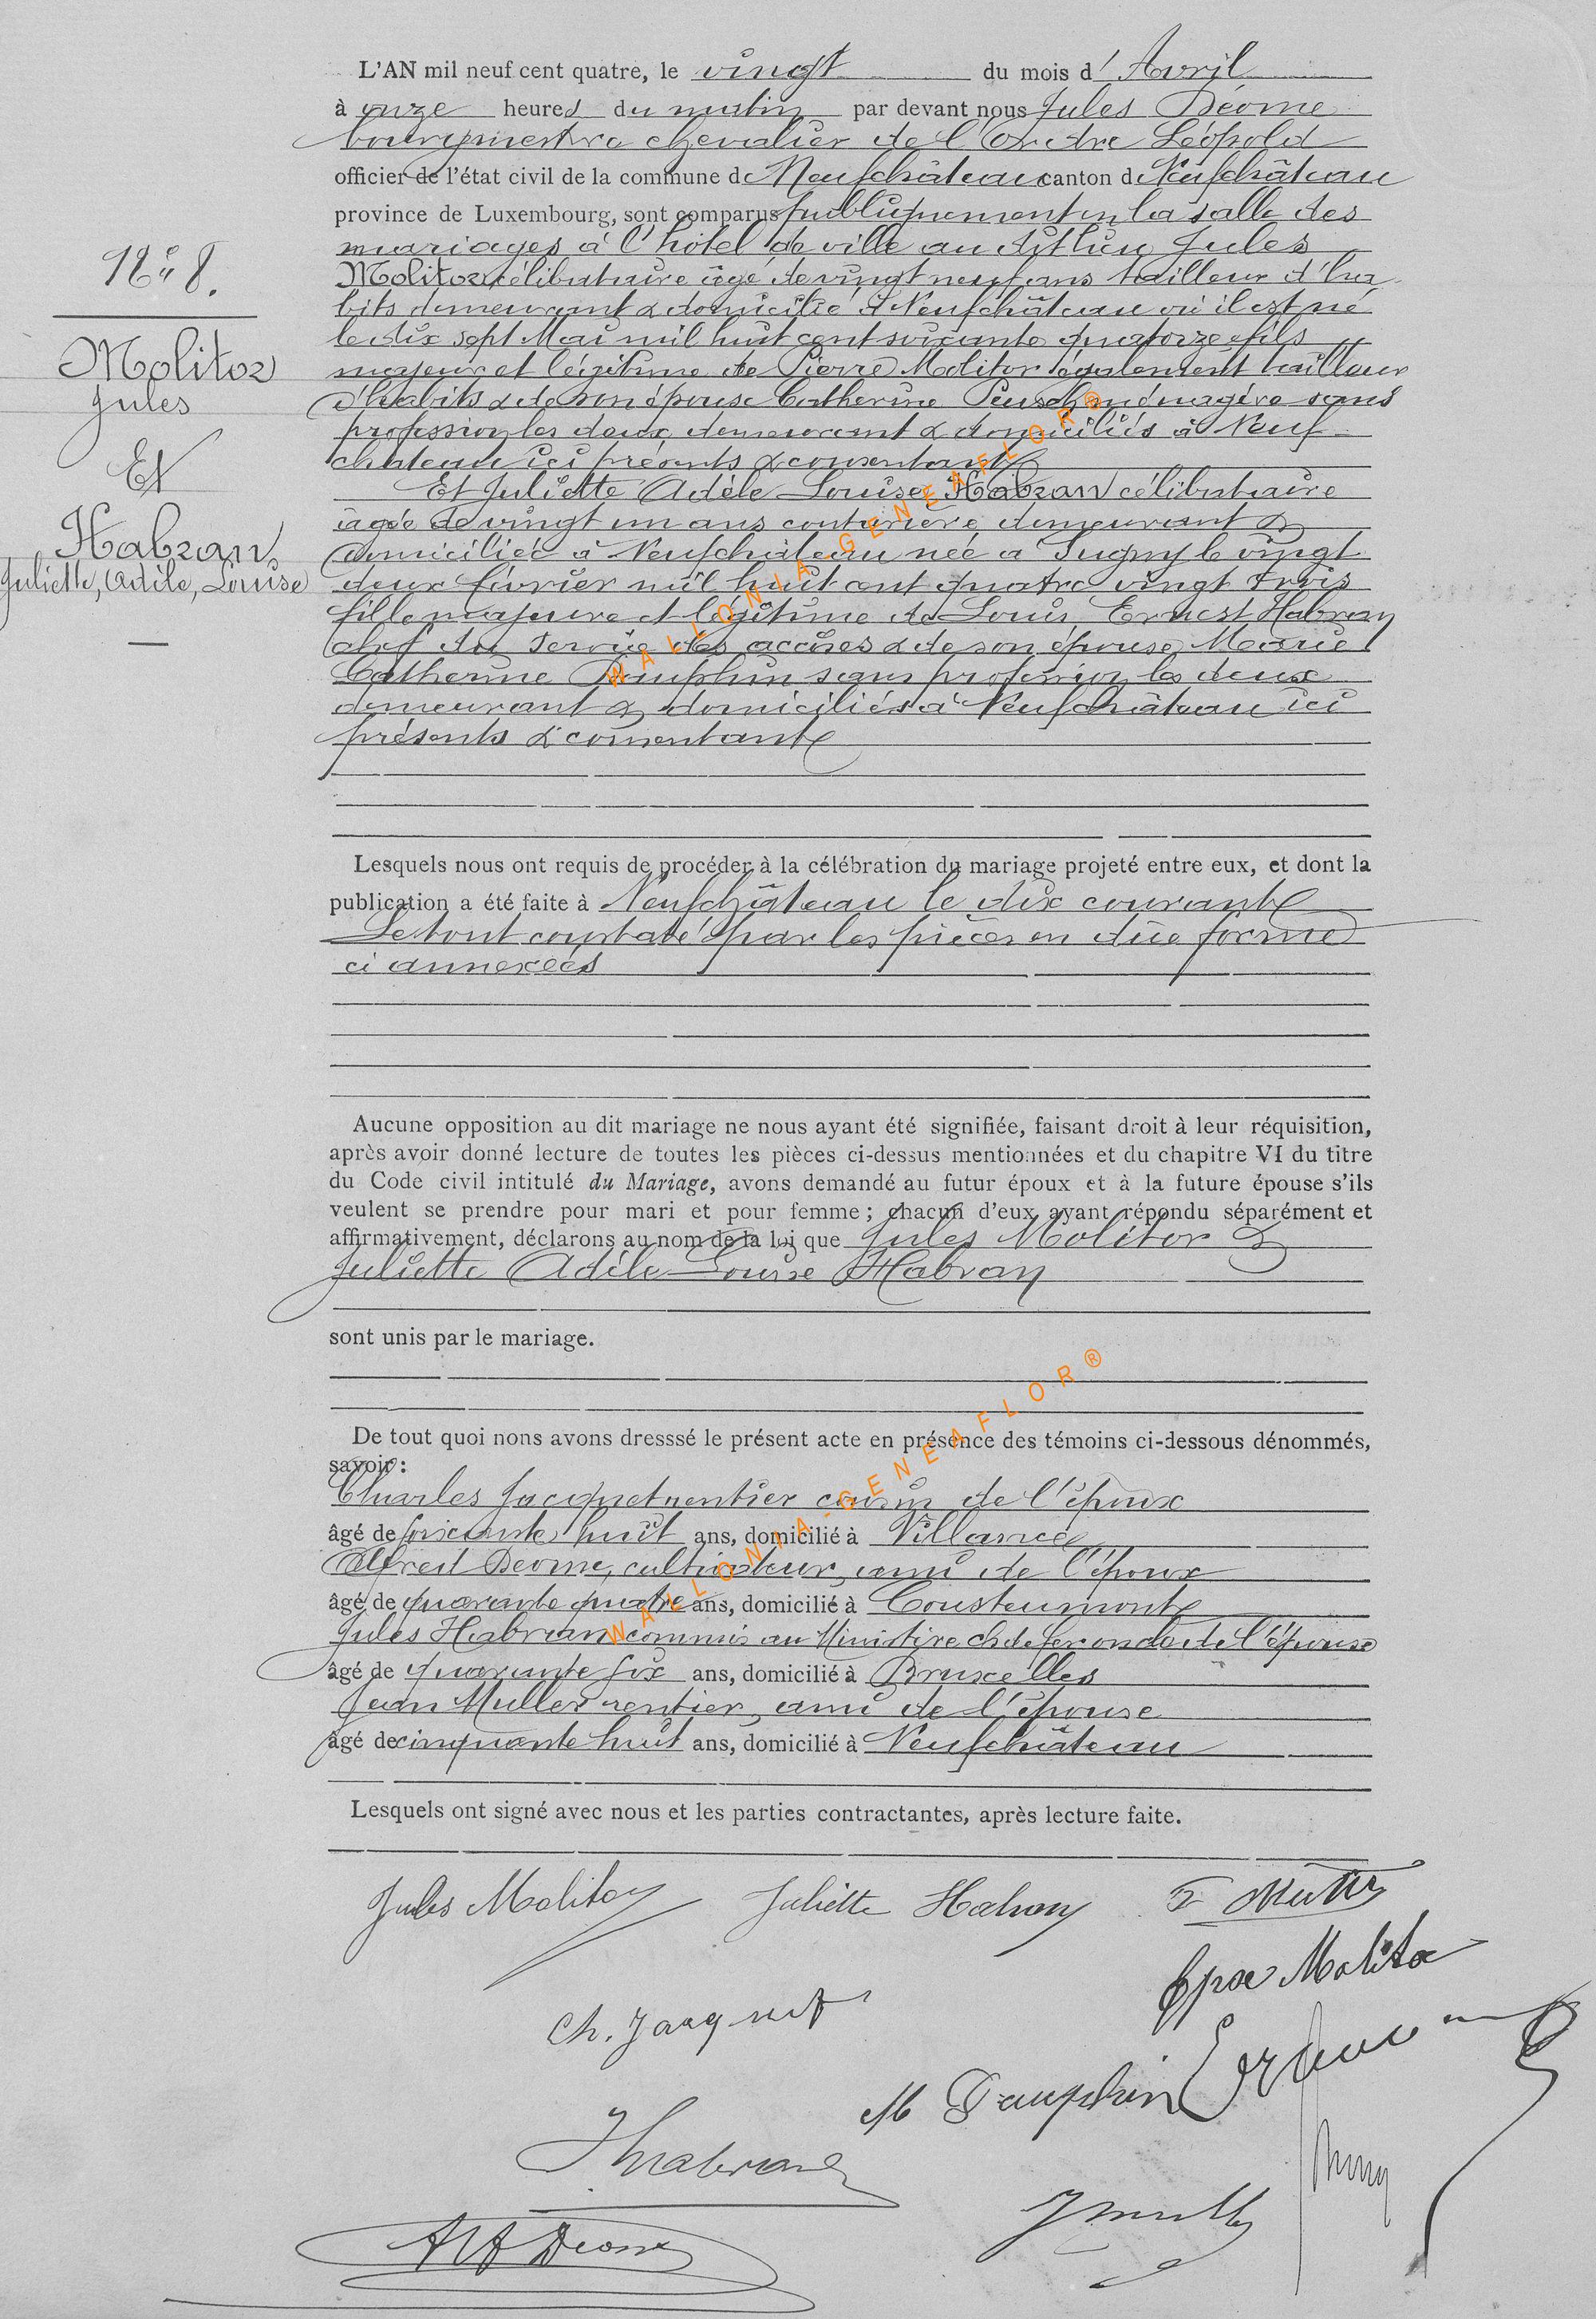 L'AN mil neuf cent quatre, le vingt du mois d' Avril
à onze heures du matin par devant nous Jules Déome
bourgmestre chevalier de l'Ordre Léopold
officier de l'état civil de la commune de Neufchâteau canton de Neufchâteau
province de Luxembourg, sont comparus publiquement en la salle des
mariages à l'hôtel de ville au dit lieu Jules
Molitor célibataire âgé de vingt neuf ans tailleur d'ha
bits demeurant & domicilié à Neufchâteau où il est né
le dix sept Mai mil huit cent soixante quatorze fils
majeur et légitime de Pierre Molitor également tailleur
d'habits & de son épouse Catherine Peusch ménagère sans
profession les deux demeurant & domiciliés à Neuf-
château ici présents & consentants
Et Juliette Adèle Louise Habran célibataire
âgée de vingt un ans couturière demeurant &
domiciliée à Neufchâteau née à Sugny le vingt
deux février mil huit cent quatre vingt trois
fille majeure et légitime de Louis, Ernest Habran
chef du service des accises & de son épouse Marie
Catherine Dauphin sans profession les deux
demeurant & domiciliés à Neufchâteau ici
présents & consentants
No 8.
Molitor
Jules
Et
Habran
Juliette, Adèle, Louise
Lesquels nous ont requis de procéder à la célébration du mariage projeté entre eux, et dont la
publication a été faite à Neufchâteau le dix courant
Le tout constaté par les pièces en due forme
ci annexées
Aucune opposition au dit mariage ne nous ayant été signifiée, faisant droit à leur réquisition,
après avoir donné lecture de toutes les pièces ci-dessus mentionnées et du chapitre VI du titre
du Code civil intitulé du Mariage, avons demandé au futur époux et à la future épouse s'ils
veulent se prendre pour mari et pour femme ; chacun d'eux ayant répondu séparément et
affirmativement, déclarons au nom de la loi que Jules Molitor &
Juliette Adèle Louise Habran
sont unis par le mariage.
De tout quoi nons avons dresssé le présent acte en présence des témoins ci-dessous dénommés,
savoir :
Charles Jacquet rentier cousin de l'époux
âgé de soixante huit ans, domicilié à Villance
Alfred Deome, cultivateur, ami de l'époux
âgé de quarante quatre ans, domicilié à Cousteumont
Jules Habran commis au Ministère ch de fer oncle de l'épouse
âgé de quarante six ans, domicilié à Bruxelles
Jean Muller rentier, ami de l'épouse
âgé de cinquante huit ans, domicilié à Neufchâteau
Lesquels ont signé avec nous et les parties contractantes, après lecture faite.
Jules Molitor Juliette Habran
Epse Molitor
Ch. Jacquet
M Dauphin
J Habran
J Mull
Alf Deome
WALLONIA-GENEAFLOR®
WALLONIA-GENEAFLOR®